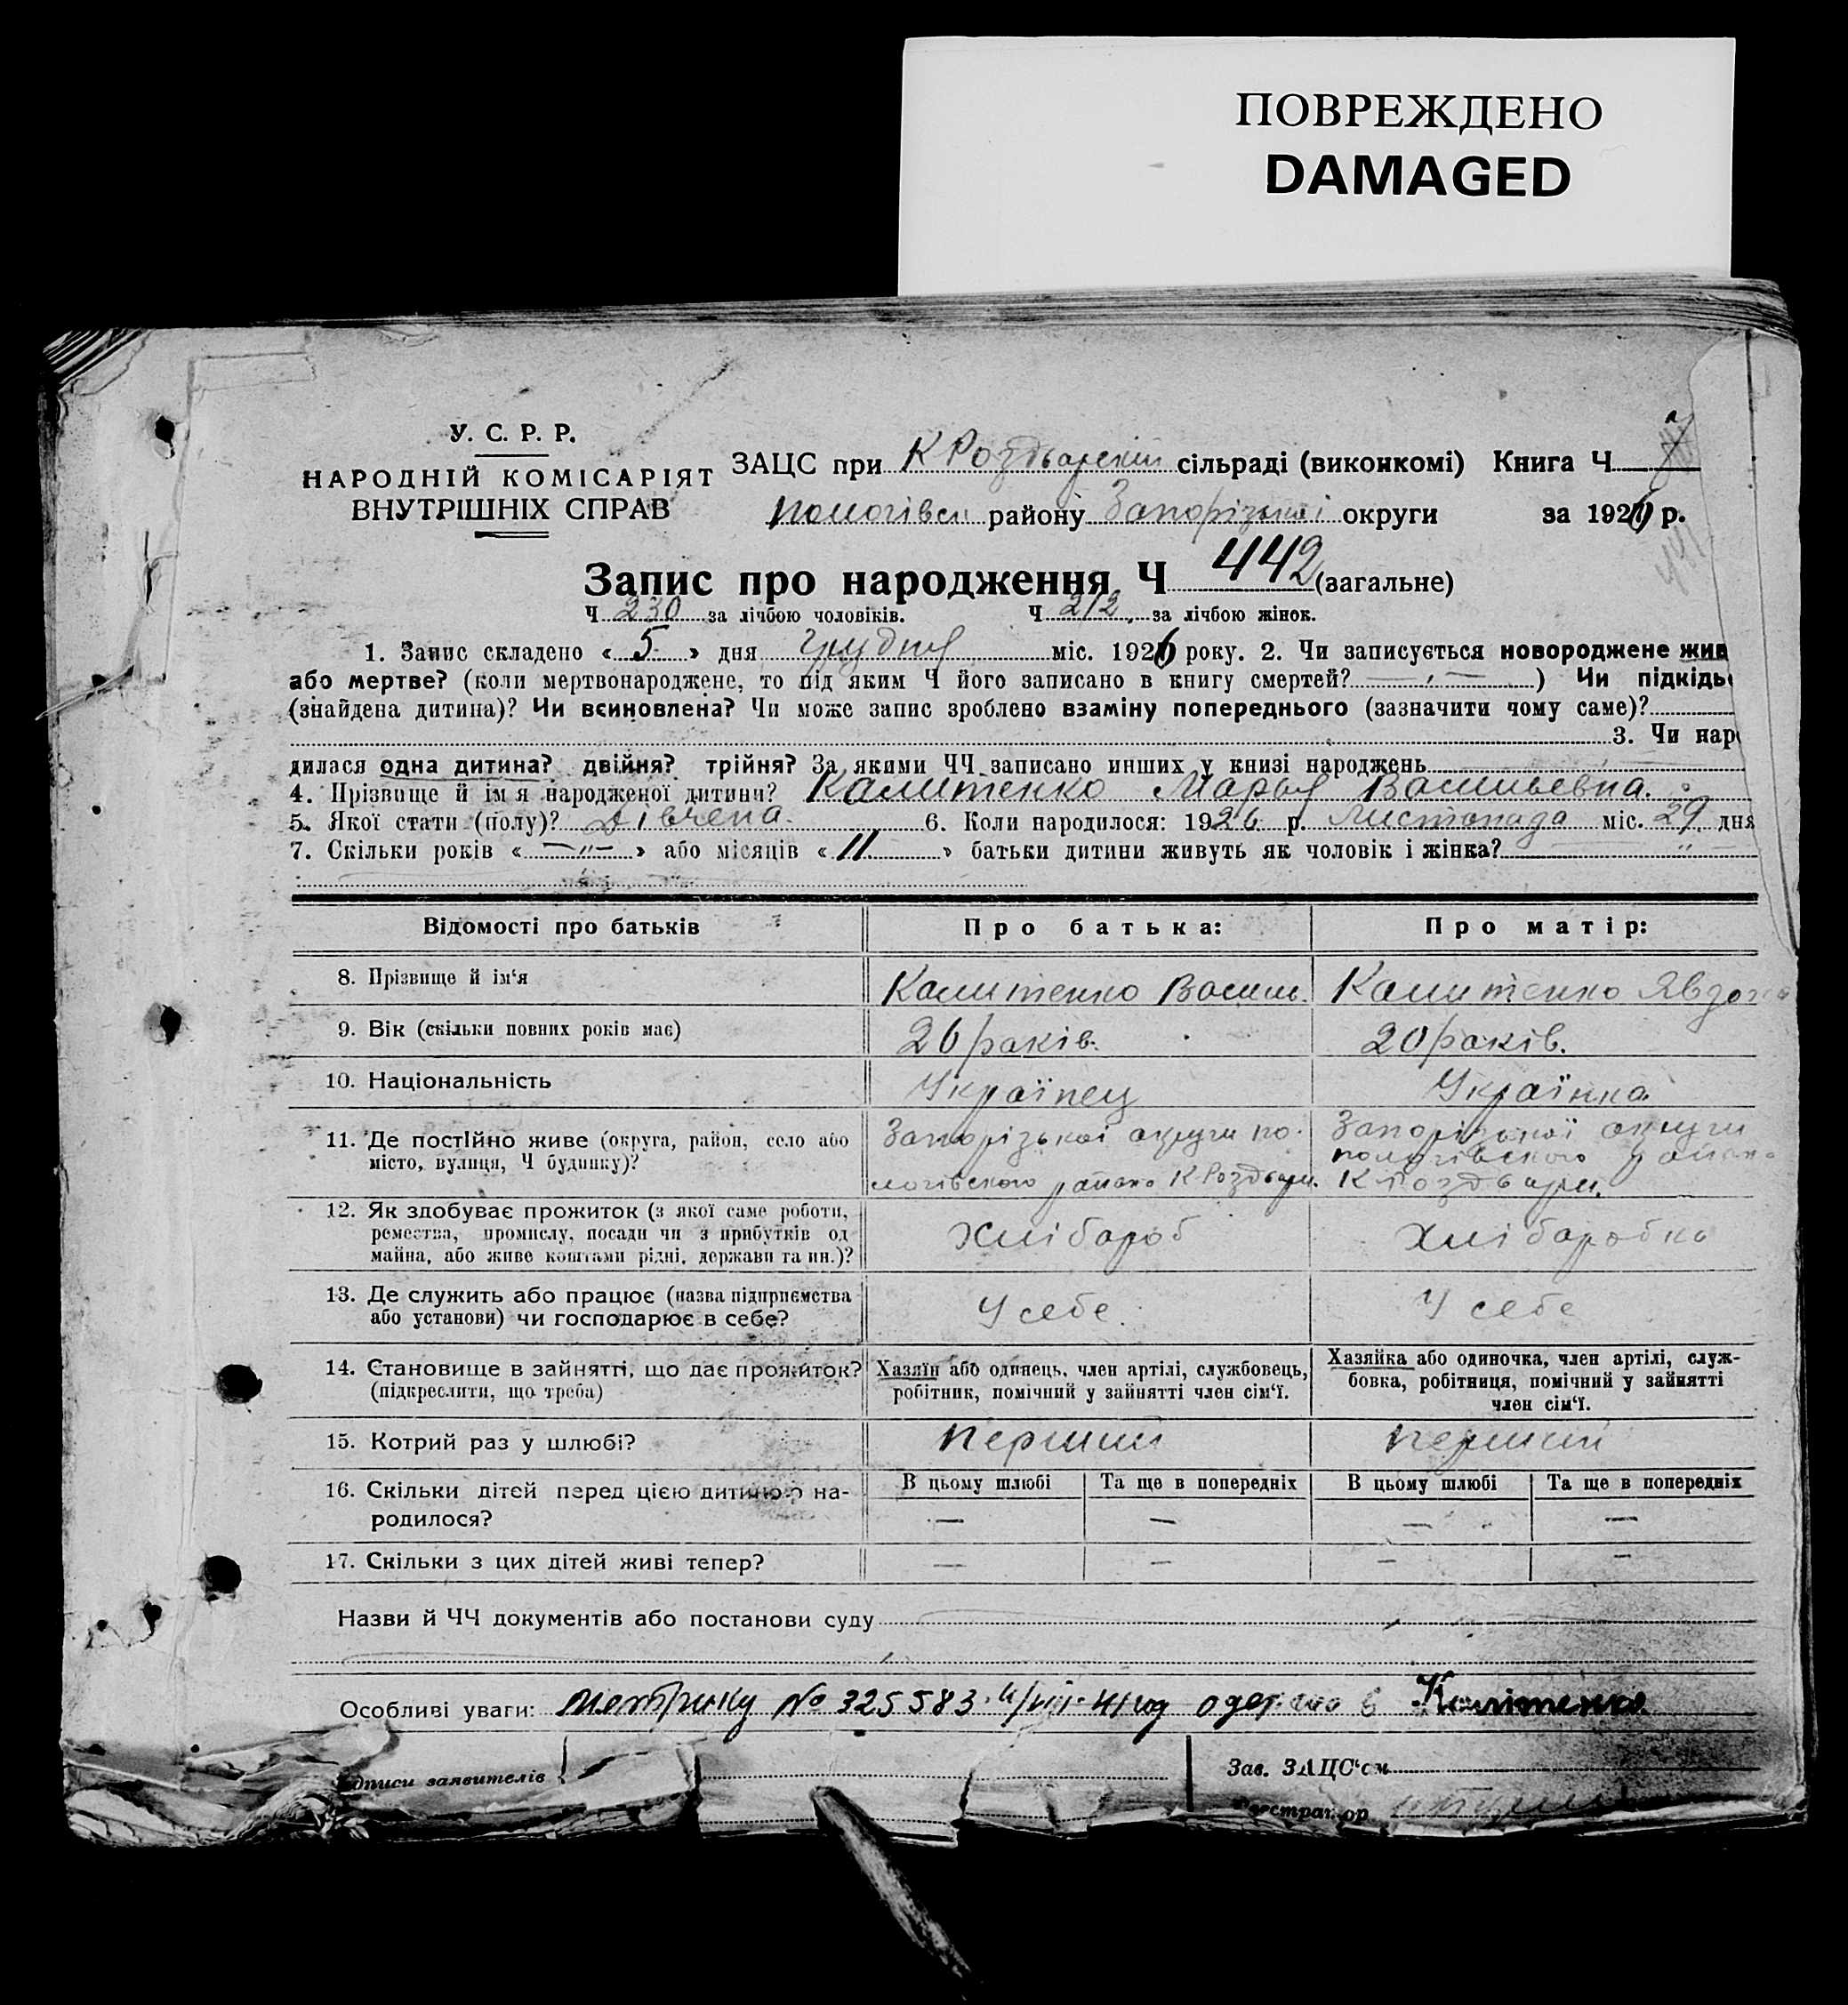 ПОВРЕЖДЕНО
DAMAGED
У. С. Р. Р.
НАРОДНІЙ КОМІСАРІЯТ
ВНУТРІШНІХ СПРАВ
ЗАЦС при сільраді (виконкомі) Книга Ч
району Запорізької округи за 1926 р.
Запис про народження Ч 442 (загальне)
Ч 230 за лічбою чоловіків. Ч 212 за лічбою жінок.
1. Запис складено « 5 » дня Грудня міс. 1926 року. 2. Чи записується новороджене жив
або мертве? (коли мертвонароджене, то під яким Ч його записано в книгу смертей? — „ — ) Чи підкідь
(знайдена дитина)? Чи всиновлена? Чи може запис зроблено взаміну попереднього (зазначити чому саме)?
3. Чи наро
дилася одна дитина? двійня? трійня? За якими ЧЧ записано инших у книзі народжень
4. Прізвище й ім'я народженої дитини? Калитенко Марья Васильевна.
5. Якої стати (полу)? Дівчена. 6. Коли народилося: 1926 р. Листопада міс. 29 дня
7. Скільки років « — „ — » або місяців « 11 » батьки дитини живуть як чоловік і жінка? — „ —
Відомості про батьків Про батька: Про матір:
8. Прізвище й ім'я Калитенко Василь. Калитенко Явдоха
9. Вік (скільки повних років має) 26 раків. 20 раків.
10. Національність Українец Українка
11. Де постійно живе (округа, район, село або Запорізької округи по- Запорізької округи
місто, вулиця, Ч будинку)? логівського района К-Роздори. пологівського района
К Роздори.
12. Як здобуває прожиток (з якої саме роботи,
ремества, промислу, посади чи з прибутків од Хлібароб Хлібаробка
майна, або живе коштами рідні, держави та ин.)?
13. Де служить або працює (назва підприємства У себе. У себе
або установи) чи господарює в себе?
14. Становище в зайнятті, що дає прожиток? Хазяїн або одинець, член артілі, службовець, Хазяйка або одиночка, член артілі, служ-
(підкреслити, що треба) робітник, помічний у зайнятті член сім'ї. бовка, робітниця, помічний у зайнятті
член сім'ї.
15. Котрий раз у шлюбі? перший перший
16. Скільки дітей перед цією дитиною на- В цьому шлюбі Та ще в попередніх В цьому шлюбі Та ще в попередніх
родилося? — — — —
17. Скільки з цих дітей живі тепер? — — — —
Назви й ЧЧ документів або постанови суду
Особливі уваги: метрику № 325583
дписи заявителів Зав. ЗАЦС'ом
Реєстратор